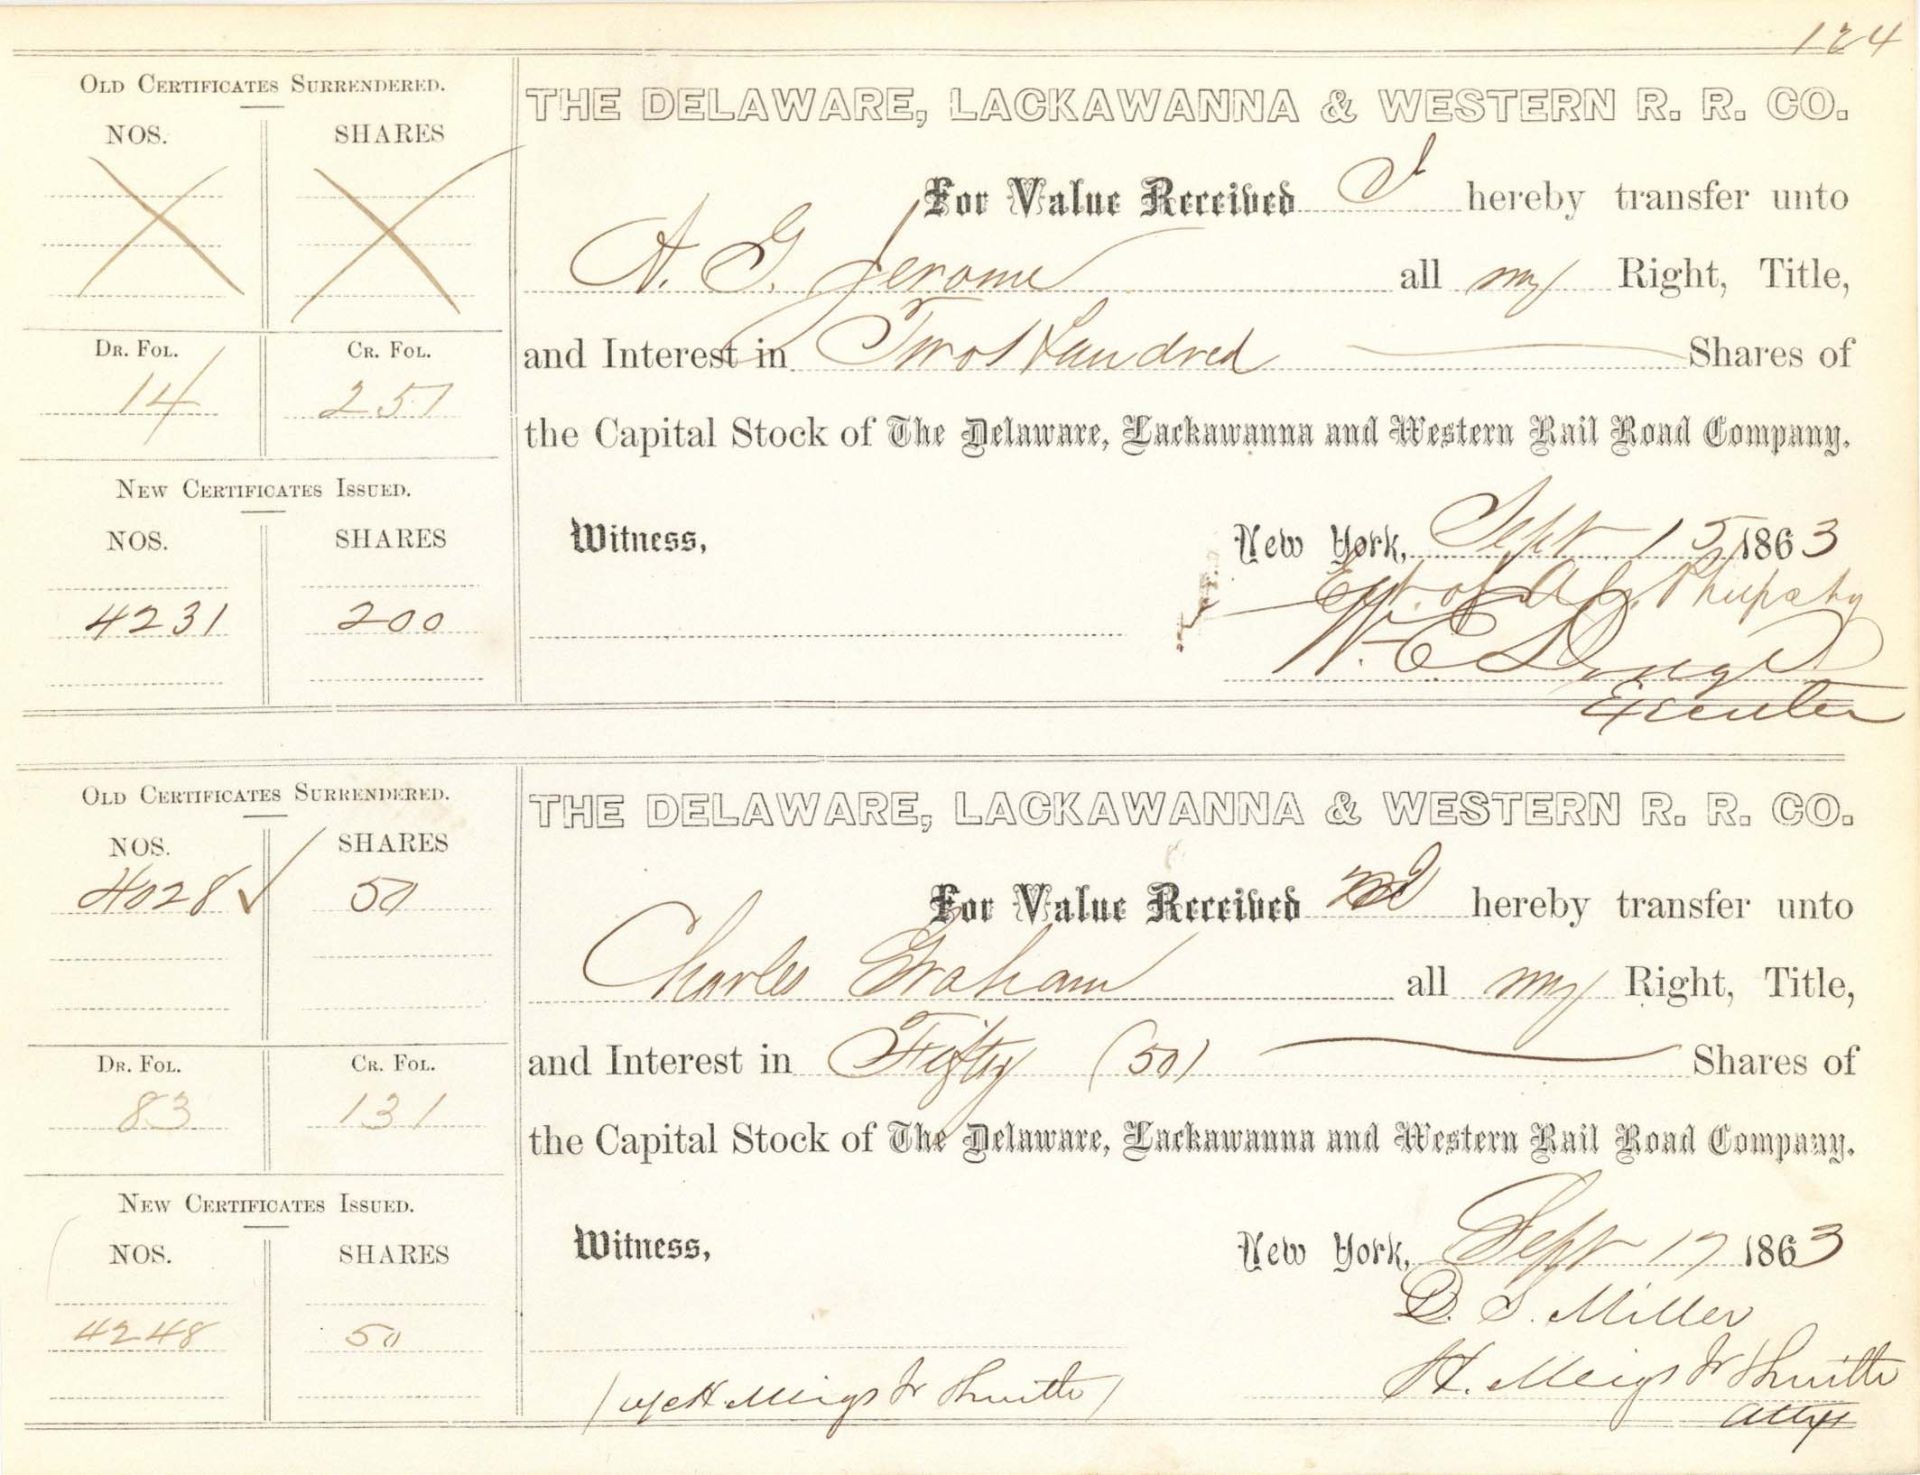 124
OLD CERTIFICATES SURRENDERED.
NOS. SHARES
DR. FOL. CR. FOL.
14 251
NEW CERTIFICATES ISSUED.
NOS. SHARES
4231 200
THE DELAWARE, LACKAWANNA & WESTERN R. R. CO.
For Value Received I hereby transfer unto
A. G. Jerome all my Right, Title,
and Interest in Two Hundred Shares of
the Capital Stock of The Delaware, Lackawanna and Western Rail Road Company.
Witness, New York, Sept 15 1863
Est. of A. G.
W. E. Dodge
Executor
OLD CERTIFICATES SURRENDERED.
NOS. SHARES
4028 50
DR. FOL. CR. FOL.
83 131
NEW CERTIFICATES ISSUED.
NOS. SHARES
4248 50
THE DELAWARE, LACKAWANNA & WESTERN R. R. CO.
For Value Received I hereby transfer unto
Charles Graham all my Right, Title,
and Interest in Fifty (50) Shares of
the Capital Stock of The Delaware, Lackawanna and Western Rail Road Company.
Witness, New York, Sept 17 1863
D. S. Miller
H. Meigs Jr & Smith
Atty
H Meigs Jr & Smith